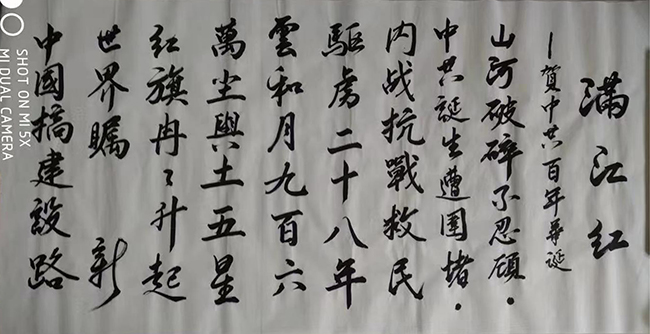 满江红
—賀中共百年華诞
山河破碎不忍顾.
中共誕生遭围堵.
内战抗戰救民
驅虏二十八年
雲和月九百六
萬尘與土五星
红旗冉冉升起
世界瞩 新
中國搞建設路
SHOT ON MI 5X
MI DUAL CAMERA